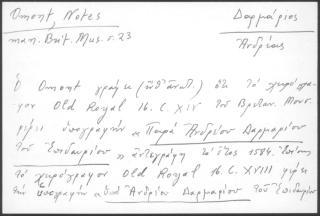 Omont, Notes
man. Brit. Mus. σ. 23
Δαρμάριος
Ἀνδρέας
ὁ Omont γράφει ὅτι τὸ χειρόγρα-
φον Old Royal 16. C. XIV τοῦ Βρεταν. Μουσ.
φέρει ὑπογραφὴν « Παρὰ Ἀνδρέου Δαρμαρίου
τοῦ Ἐπιδαυρίου » ἀντεγράφη τὸ ἔτος 1584. Ἐπίσης
τὸ χειρόγραφον Old Royal 16. C. XVIII φέρει
τὴν ὑπογραφὴν « ὑπὸ Ἀνδρέου Δαρμαρίου τοῦ Ἐπιδαυρίου